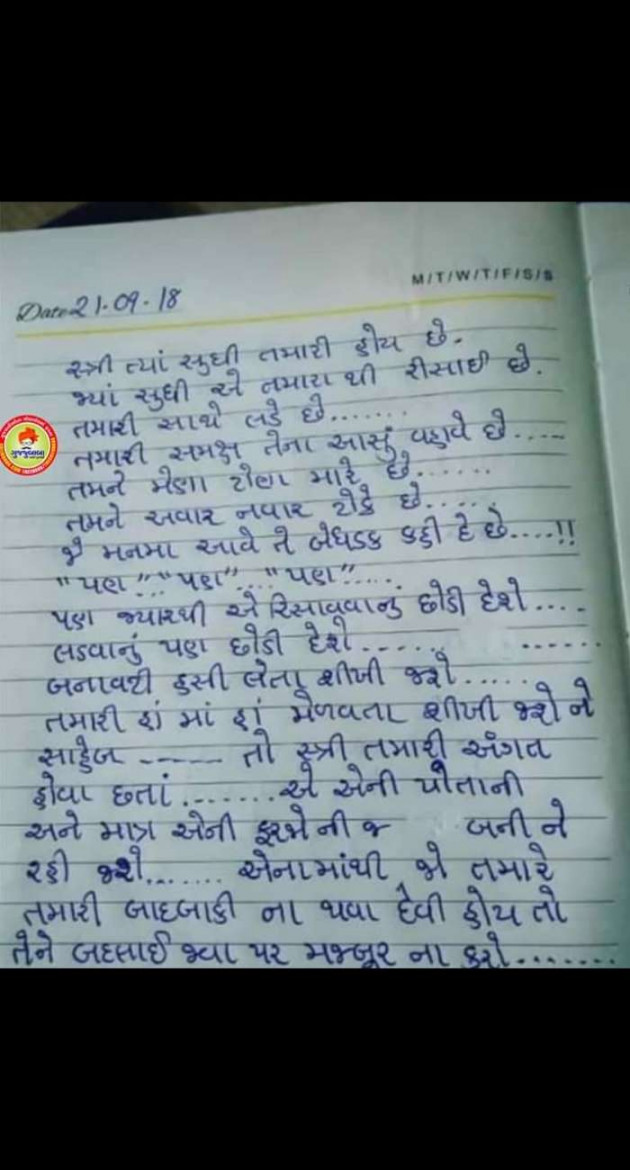 M/T/W/T/F/S/S
Date 21-09-18
સ્ત્રી ત્યાં સુધી તમારી હોય છે.
જ્યાં સુધી એ તમારા થી રીસાઈ છે.
તમારી સાથે લડે છે.......
તમારી સમક્ષ તેના આસું વહાવે છે.....
તમને મેણા ટોણા મારે છે.......
તમને અવાર નવાર ટોકે છે......
જે મનમા આવે તે બેધડક કહી દે છે....!!
"પણ".."પણ"..."પણ".....
પણ જ્યારથી એ રિસાવવાનુ છોડી દેશે....
લડવાનું પણ છોડી દેશે...... ......
બનાવટી હસી લેતા શીખી જશે......
તમારી હાં માં હાં મેળવતા શીખી જશે ને
સાહેબ ------ તો સ્ત્રી તમારી અંગત
હોવા છતાં.......એ એની પોતાની
અને માત્ર એની ફરજો ની જ બની ને
રહી જશે....... એનામાંથી જો તમારે
તમારી બાદબાકી ના થવા દેવી હોય તો
તેને બદલાઈ જવા પર મજબૂર ના કરો.......